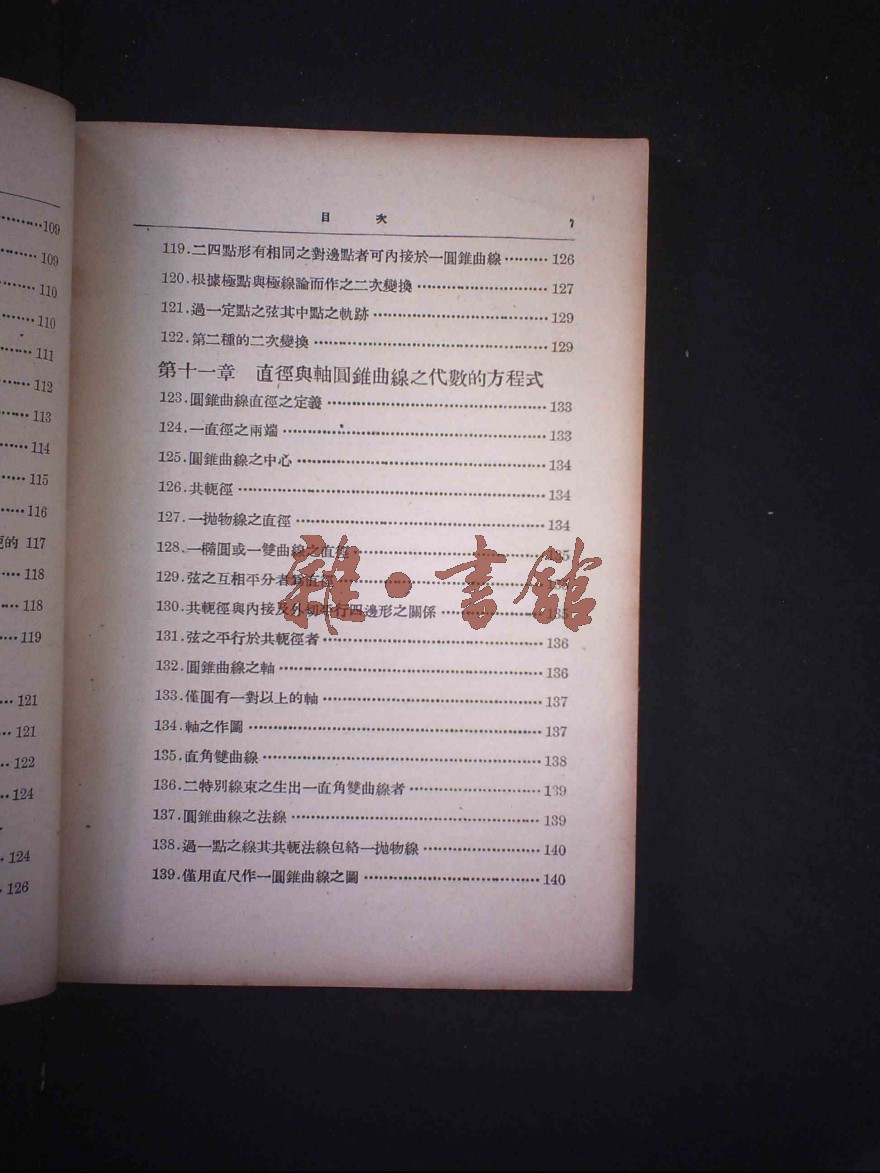 109
109
110
110
111
112
113
114
115
116
的 117
118
118
119
121
121
122
124
124
126
目 次 7
119.二四點形有相同之對邊點者可內接於一圓錐曲線………126
120.根據極點與極線論而作之二次變換………127
121.過一定點之弦其中點之軌跡………129
122.第二種的二次變換………129
第十一章 直徑與軸圓錐曲線之代數的方程式
123.圓錐曲線直徑之定義………133
124.一直徑之兩端………133
125.圓錐曲線之中心………134
126.共軛徑………134
127.一拋物線之直徑………134
128.一橢圓或一雙曲線之直徑………135
129.弦之互相平分者為直徑………
130.共軛徑與內接及外切平行四邊形之關係………135
131.弦之平行於共軛徑者………136
132.圓錐曲線之軸………136
133.僅圓有一對以上的軸………137
134.軸之作圖………137
135.直角雙曲線………138
136.二特別線束之生出一直角雙曲線者………139
137.圓錐曲線之法線………139
138.過一點之線其共軛法線包絡一拋物線………140
139.僅用直尺作一圓錐曲線之圖………140
雜·書館